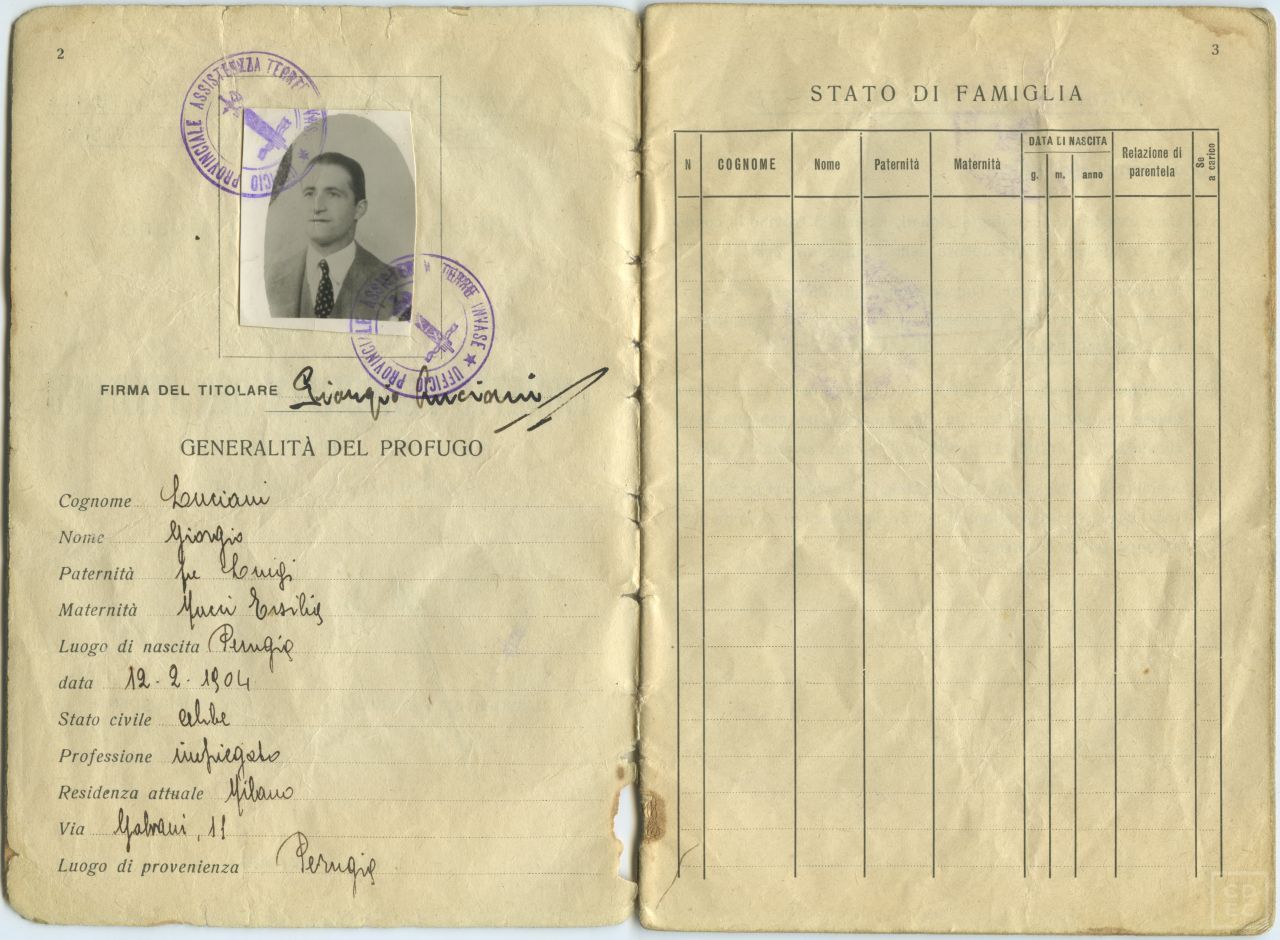 2
UFFICIO PROVINCIALE ASSISTENZA TERRE INVASE
UFFICIO PROVINCIALE ASSISTENZA TERRE INVASE
FIRMA DEL TITOLARE Giorgio Luciani
GENERALITÀ DEL PROFUGO
Cognome Luciani
Nome Giorgio
Paternità fu Luigi
Maternità Ersilia
Luogo di nascita Perugia
data 12-2-1904
Stato civile celibe
Professione impiegato
Residenza attuale Milano
Via Galvani, 11
Luogo di provenienza Perugia
3
STATO DI FAMIGLIA
N COGNOME Nome Paternità Maternità DATA DI NASCITA g. m. anno Relazione di parentela Se a carico
CDEC